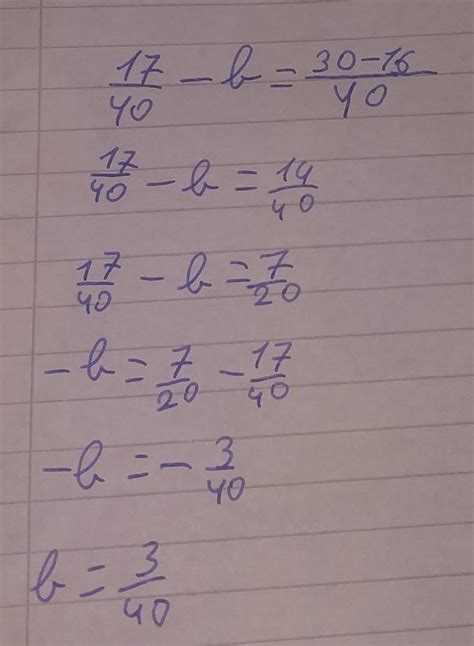 17/40 - b = 30-16/40
17/40 - b = 14/40
17/40 - b = 7/20
-b = 7/20 - 17/40
-b = - 3/40
b = 3/40